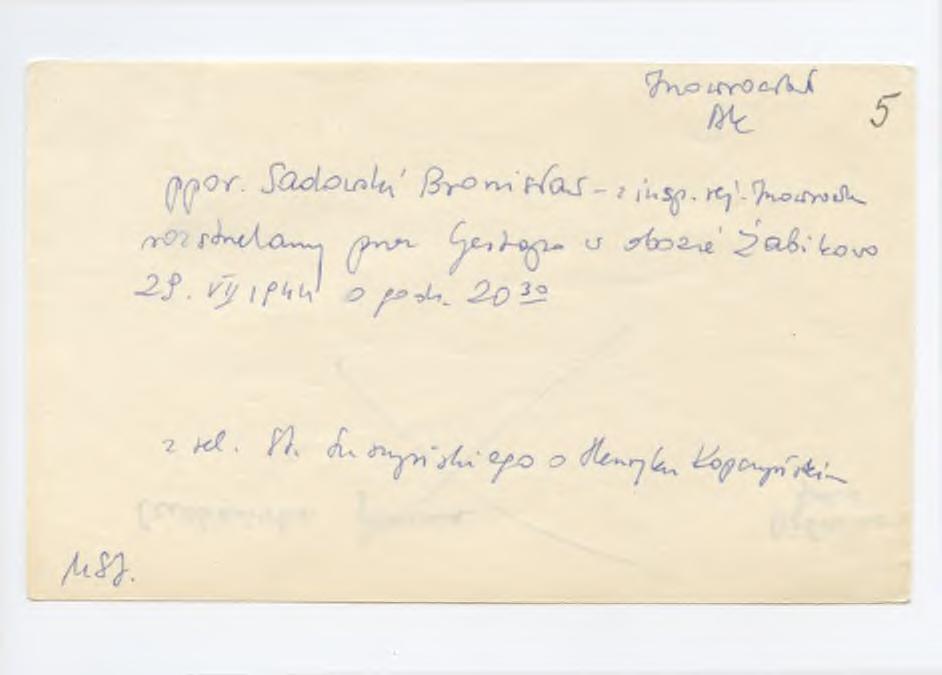 Inowrocław
AK
5
ppor. Sadowski Bronisław - z insp. rej. Inowrocław
rozstrzelany przez Gestapo w obozie Żabikowo
29. VII 1944 o godz. 20 30
z rel. St. o Henryku Kopczyńskim